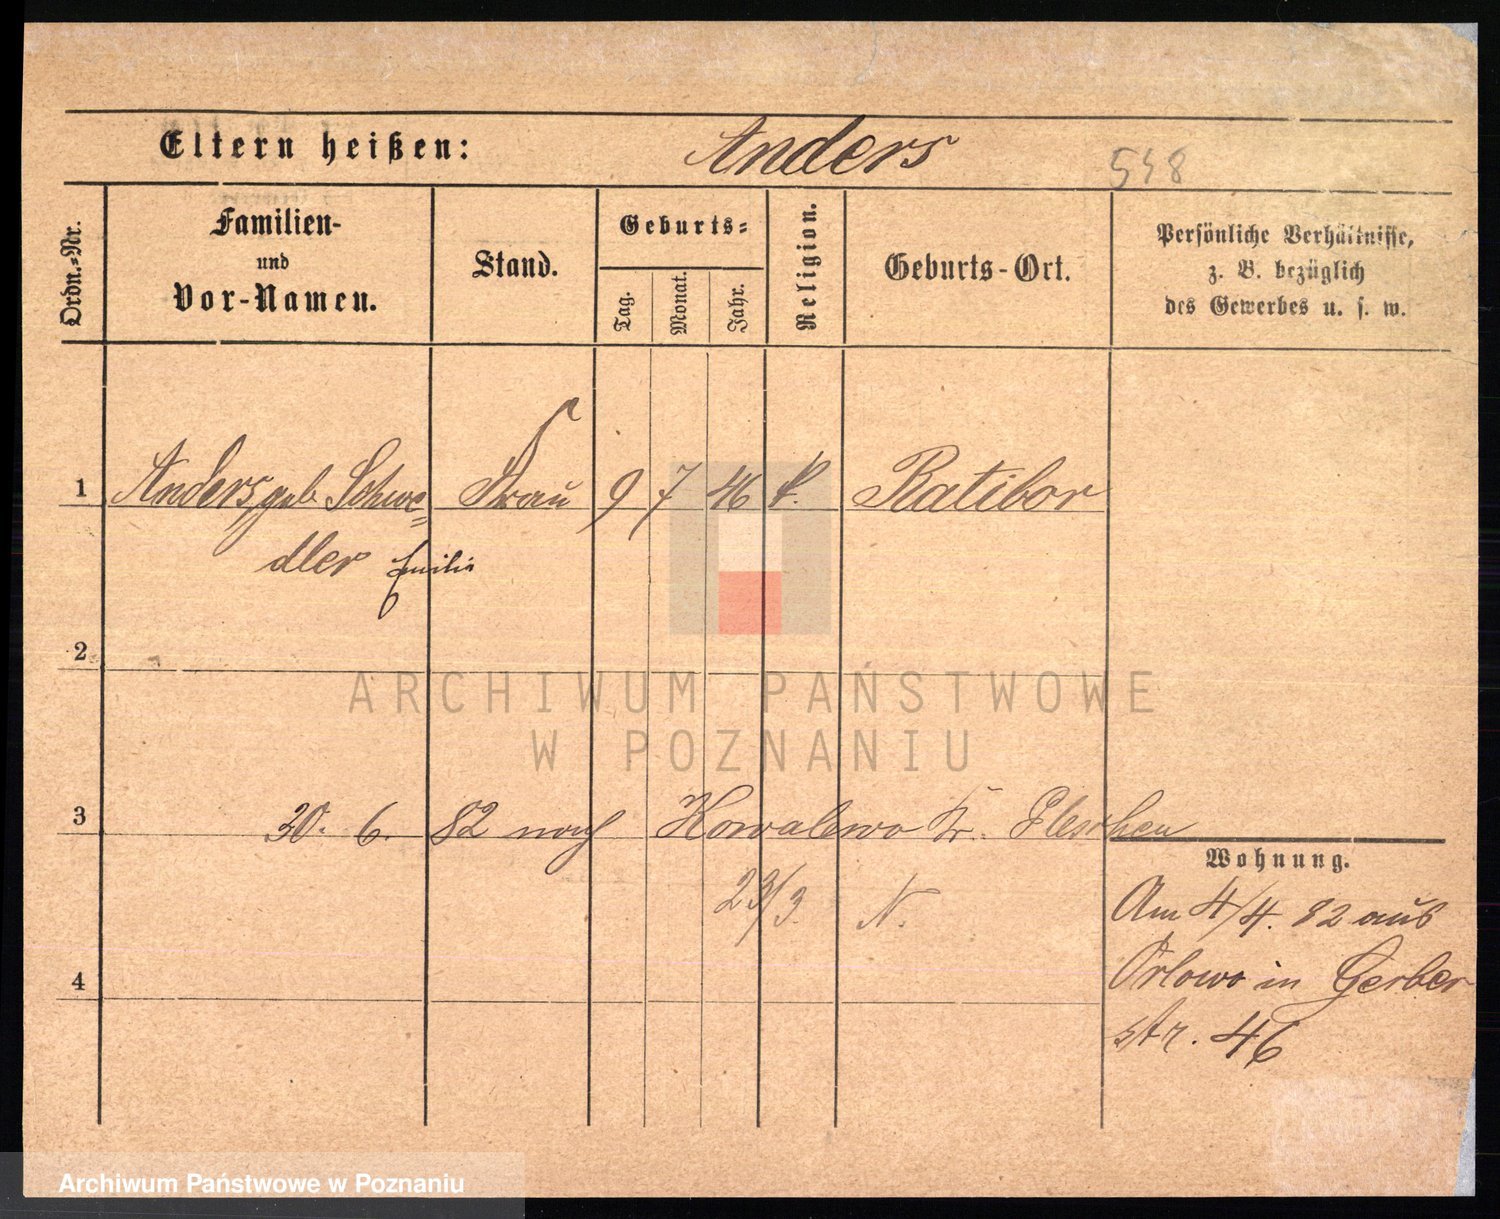 Eltern heißen: Anders 548
Ordn.=Nr.
Familien-
und
Vor-Namen.
Stand.
Geburts=
Tag.
Monat.
Jahr.
Religion.
Geburts-Ort.
Persönliche Verhältnisse,
z. B. bezüglich
des Gewerbes u. s. w.
1 Anders, geb. Schwe= Frau 9 7 46 k. Ratibor
dler Emilie
2
3 30. 6. 82 nach Kowalewo Kr. Pleschen
Wohnung.
23/3. N.
Am 4/4. 82 aus
Orlowo in Gerber
str. 46
4
ARCHIWUM PAŃSTWOWE
W POZNANIU
Archiwum Państwowe w Poznaniu